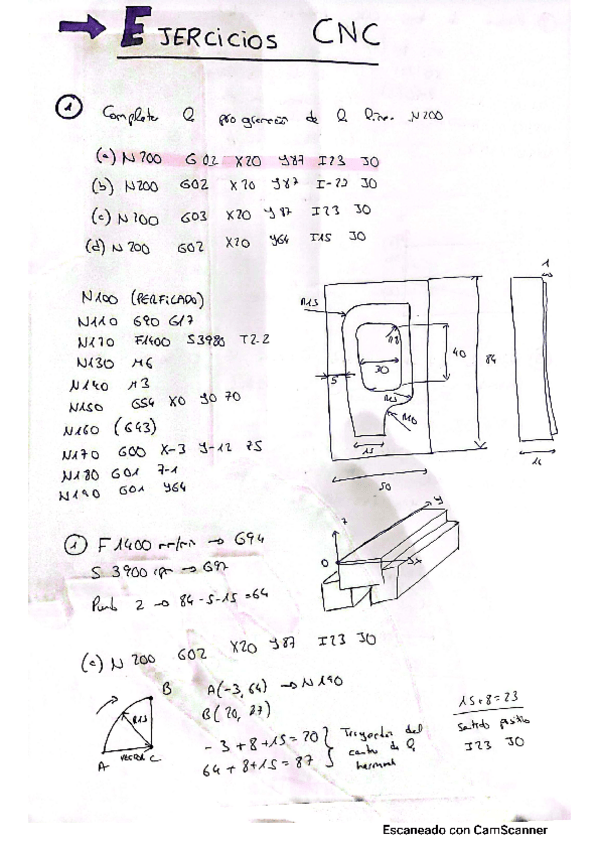 EJERCICIOS CNC
① Complete la programación de la línea N200
(a) N200 G02 X20 Y87 I23 J0
(b) N200 G02 X20 Y87 I-23 J0
(c) N200 G03 X20 Y87 I23 J0
(d) N200 G02 X20 Y64 I15 J0
N100 (PERFILADO)
N110 G90 G17
N120 F1400 S3980 T2.2
N130 M6
N140 M3
N150 G54 X0 Y0 Z0
N160 (G43)
N170 G00 X-3 Y-12 Z5
N180 G01 Z-1
N190 G01 Y64
1
R15
R8
30
5
40
84
R15
R10
15
50
16
① F1400 mm/min → G94
S 3900 rpm → G97
Punto 2 → 84-5-15=64
Z
Y
0
X
(a) N200 G02 X20 Y87 I23 J0
B
R15
A
C
A(-3, 64) → N190
B(20, 87)
-3+8+15=20
64+8+15=87
Trayectoria del
centro de la
herramienta
15+8=23
Sentido positivo
I23 J0
Escaneado con CamScanner